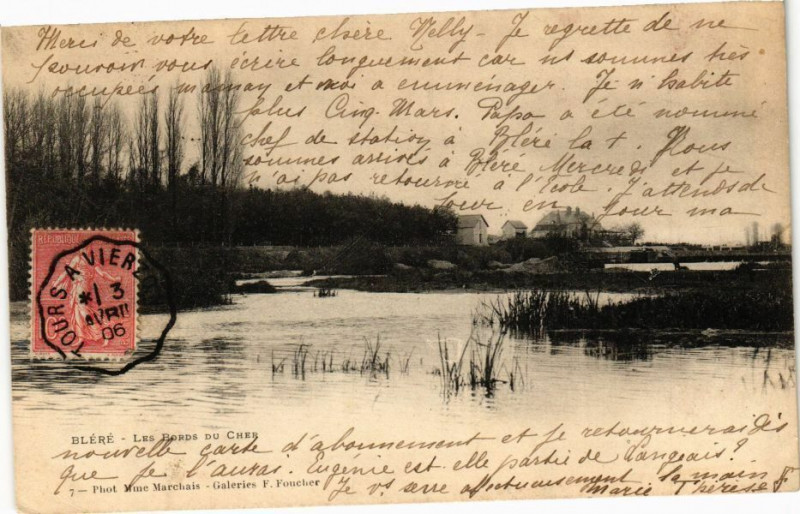 Merci de votre lettre chère Nelly - Je regrette de ne
pouvoir vous écrire longuement car ns sommes très
occupées maman et moi a emménager. Je n'habite
plus Cinq-Mars. Papa a été nommé
chef de station à Bléré la +. Nous
sommes arrivés à Bléré Mercredi et je
n'ai pas retourné à l'école. J'attends de
jour en jour ma
REPUBLIQUE
TOURS A VIERZ
*1 3
AVRIL
06
BLÉRÉ - LES BORDS DU CHER
nouvelle carte d'abonnement et je retournerai dès
que je l'aurai. Eugénie est-elle partie de Langeais?
7 — Phot Mme Marchais - Galeries F. Foucher
Je vs serre affectueusement la main
Marie Thérèse